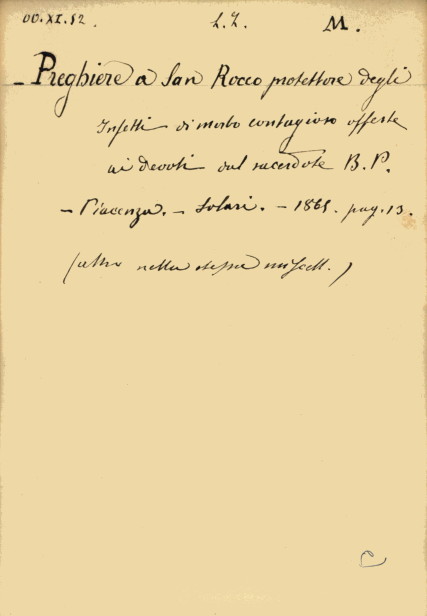 OO.XI.52. L.I. M.
- Preghiere a San Rocco protettore degli
Infetti di morbo contagioso offerte
ai devoti dal sacerdote B. P.
- Piacenza. - Solari. - 1865. pag. 13.
(altro nella stessa miscell.)
C